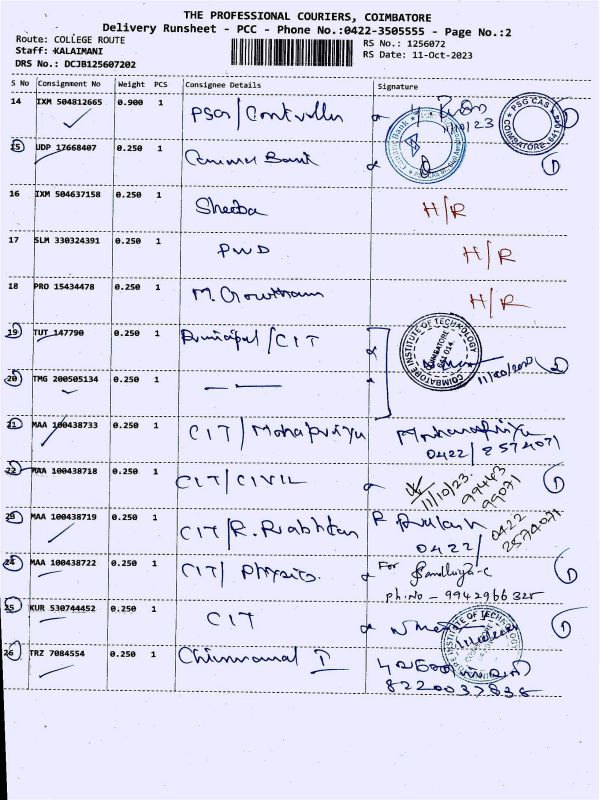 THE PROFESSIONAL COURIERS, COIMBATORE
Delivery Runsheet - PCC - Phone No.:0422-3505555 - Page No.:2
Route: COLLEGE ROUTE
RS No.: 1256072
Staff: KALAIMANI
RS Date: 11-Oct-2023
DRS No.: DCJB125607202
S No Consignment No Weight PCS Consignee Details Signature
14 IXM 504812665 0.900 1 PSG / Controller
11/10/23
PSG CAS
COIMBATORE
15 UDP 17668407 0.250 1 Bank
16 IXM 504637158 0.250 1 Sheeba H/R
17 SLM 330324391 0.250 1 PWD H/R
18 PRO 15434478 0.250 1 M. Gowtham H/R
19 TUT 147790 0.250 1 Principal / CIT
COIMBATORE INSTITUTE OF TECHNOLOGY
COIMBATORE
641 014
20 TMG 200505134 0.250 1
21 MAA 100438733 0.250 1 CIT / Mohapriya
0422/ 2574071
22 MAA 100438718 0.250 1 CIT / CIVIL
11/10/23.
99443
99071
23 MAA 100438719 0.250 1 CIT / R. Prabhakar
0422/
2574071
24 MAA 100438722 0.250 1 CIT / Physics. For Sandhiya-C
ph.No - 9942966325
25 KUR 530744452 0.250 1 CIT
26 TRZ 7084554 0.250 1
8220037838